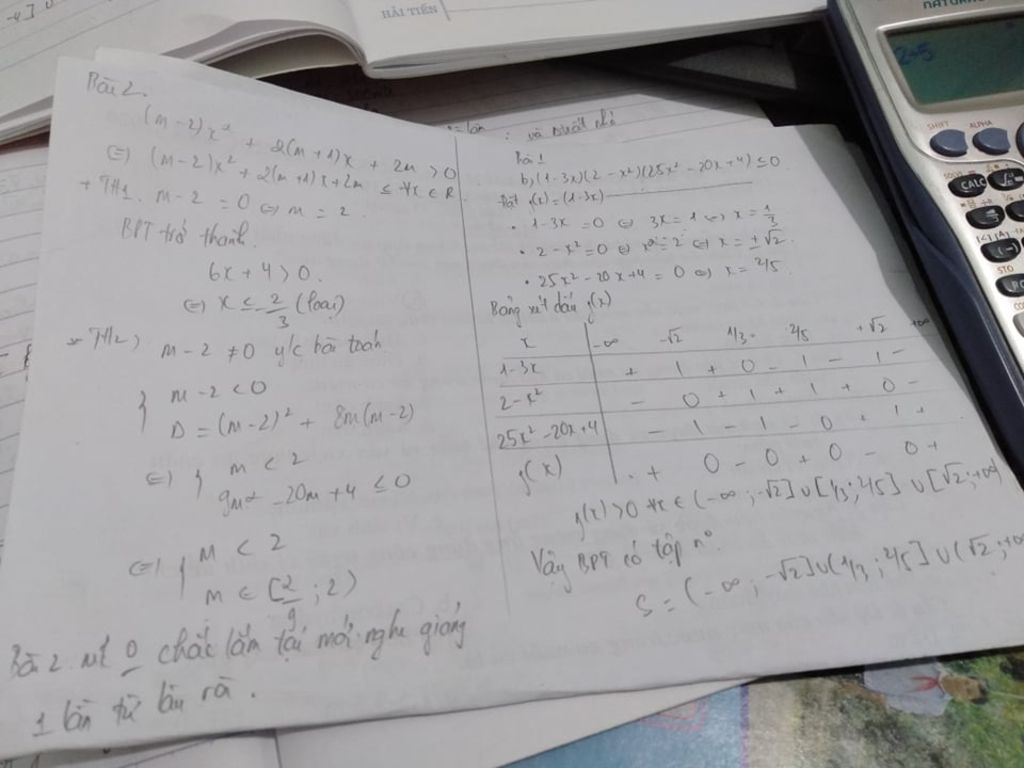 HẢI TIẾN
Bài 2.
(m-2)x² + 2(m+1)x + 2m > 0
⇔ (m-2)x² + 2(m+1)x + 2m ≤ ∀x ∈ R
+ TH1. m-2 = 0 ⇔ m = 2.
BPT trở thành.
6x + 4 > 0.
⇔ x ≤ 2/3 (loại)
TH2) m-2 ≠ 0 y/c bài toán
{ m-2 < 0
D = (m-2)² + 8m(m-2)
⇔ { m < 2
9m² - 20m + 4 ≤ 0
⇔ { m < 2
m ∈ [2/9; 2)
Bài 2 chắc lắm tại mới nghe giảng
1 lần từ lâu rà.
và nhất nhỏ
Bài 1
b) (1-3x)(2-x²)(25x²-20x+4) ≤ 0.
Đặt f(x) = (1-3x)
• 1-3x = 0 ⇔ 3x = 1 ⇔ x = 1/3
• 2-x² = 0 ⇔ x² = 2 ⇔ x = ±√2.
• 25x²-20x+4 = 0 ⇔ x = 2/5.
Bảng xét dấu f(x)
x | -∞ -√2 1/3 2/5 +√2 +∞
1-3x | + | + 0 - | - | -
2-x² | - 0 + | + | + 0 -
25x²-20x+4 | - | - | - 0 + | +
f(x) | + 0 - 0 + 0 - 0 +
f(x) > 0 ∀x ∈ (-∞; -√2] ∪ [1/3; 2/5] ∪ [√2; +∞)
Vậy BPT có tập n°.
S = (-∞; -√2] ∪ (1/3; 2/5] ∪ (√2; +∞
SHIFT ALPHA
CALC
STO